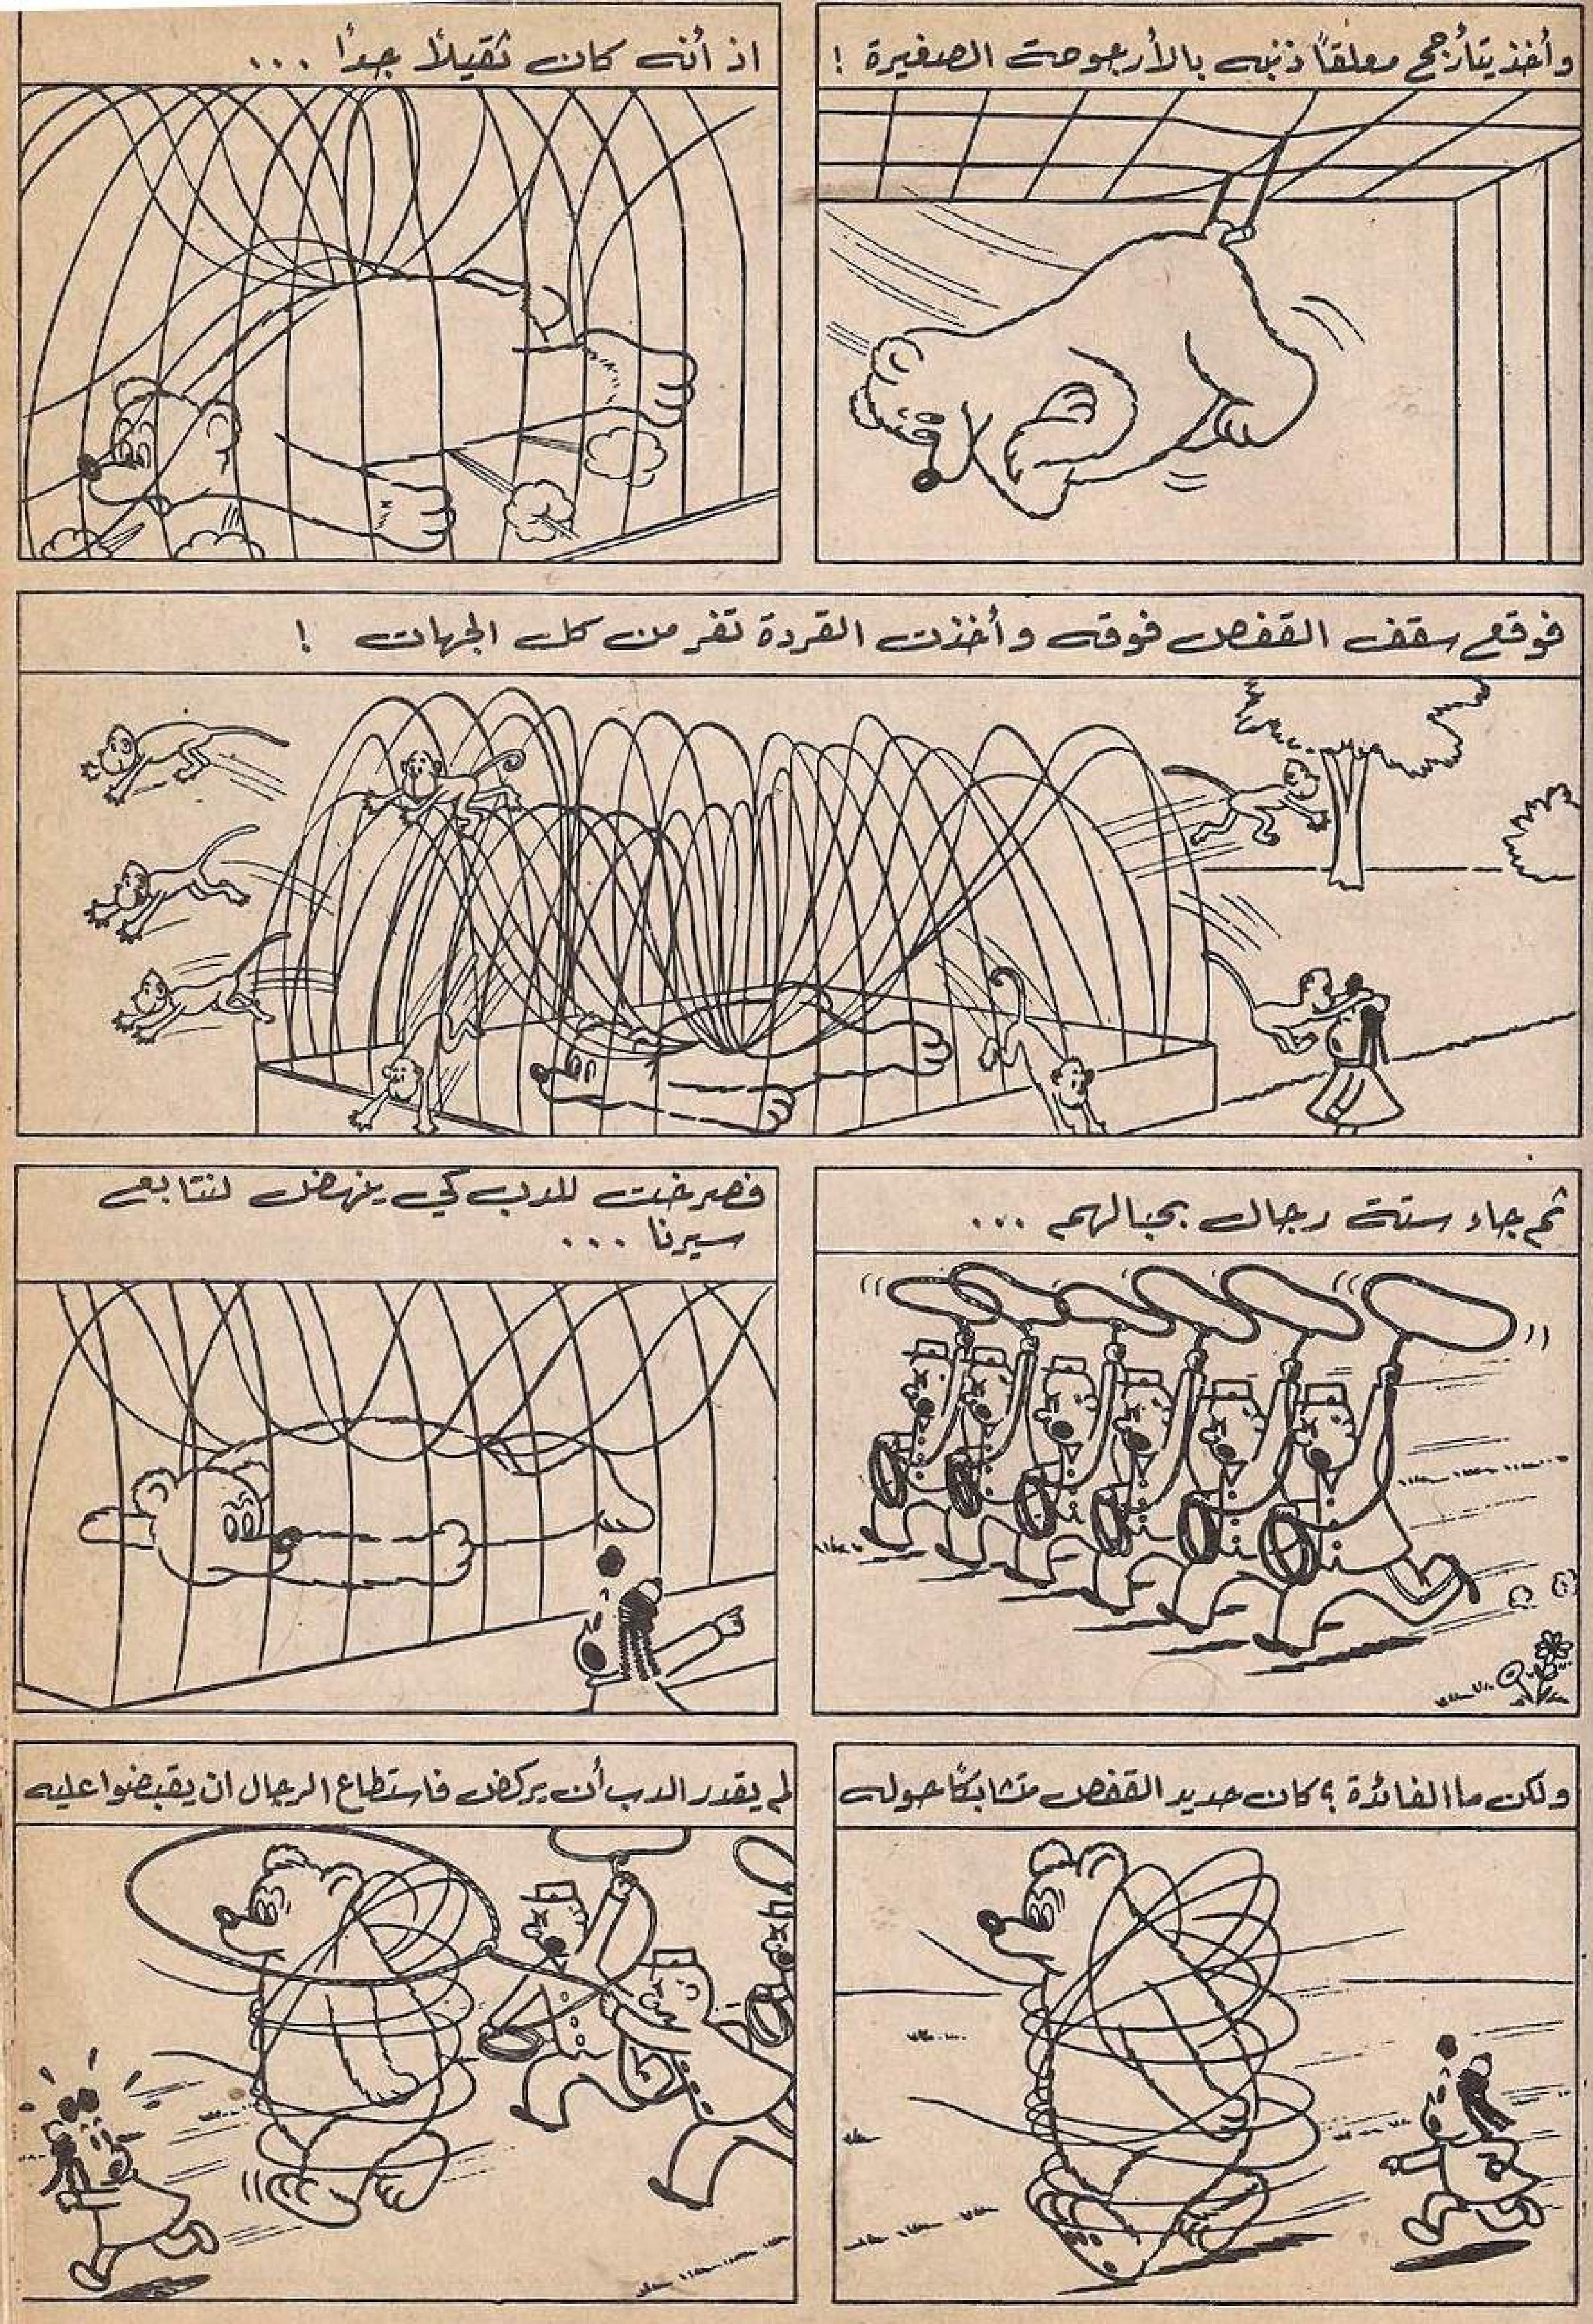 وأخذ يتأرجح معلقاً ذنبه بالأرجوحة الصغيرة !
اذ أنه كان ثقيلاً جداً ...
فوقع سقف القفص فوقه وأخذت القردة تفر من كل الجهات !
ثم جاء ستة رجال بحبالهم ...
فصرخت للدب كي ينهض لنتابع
سيرنا ...
ولكن ما الفائدة ؟ كان حديد القفص متشابكاً حوله
لم يقدر الدب أن يركض فاستطاع الرجال ان يقبضوا عليه